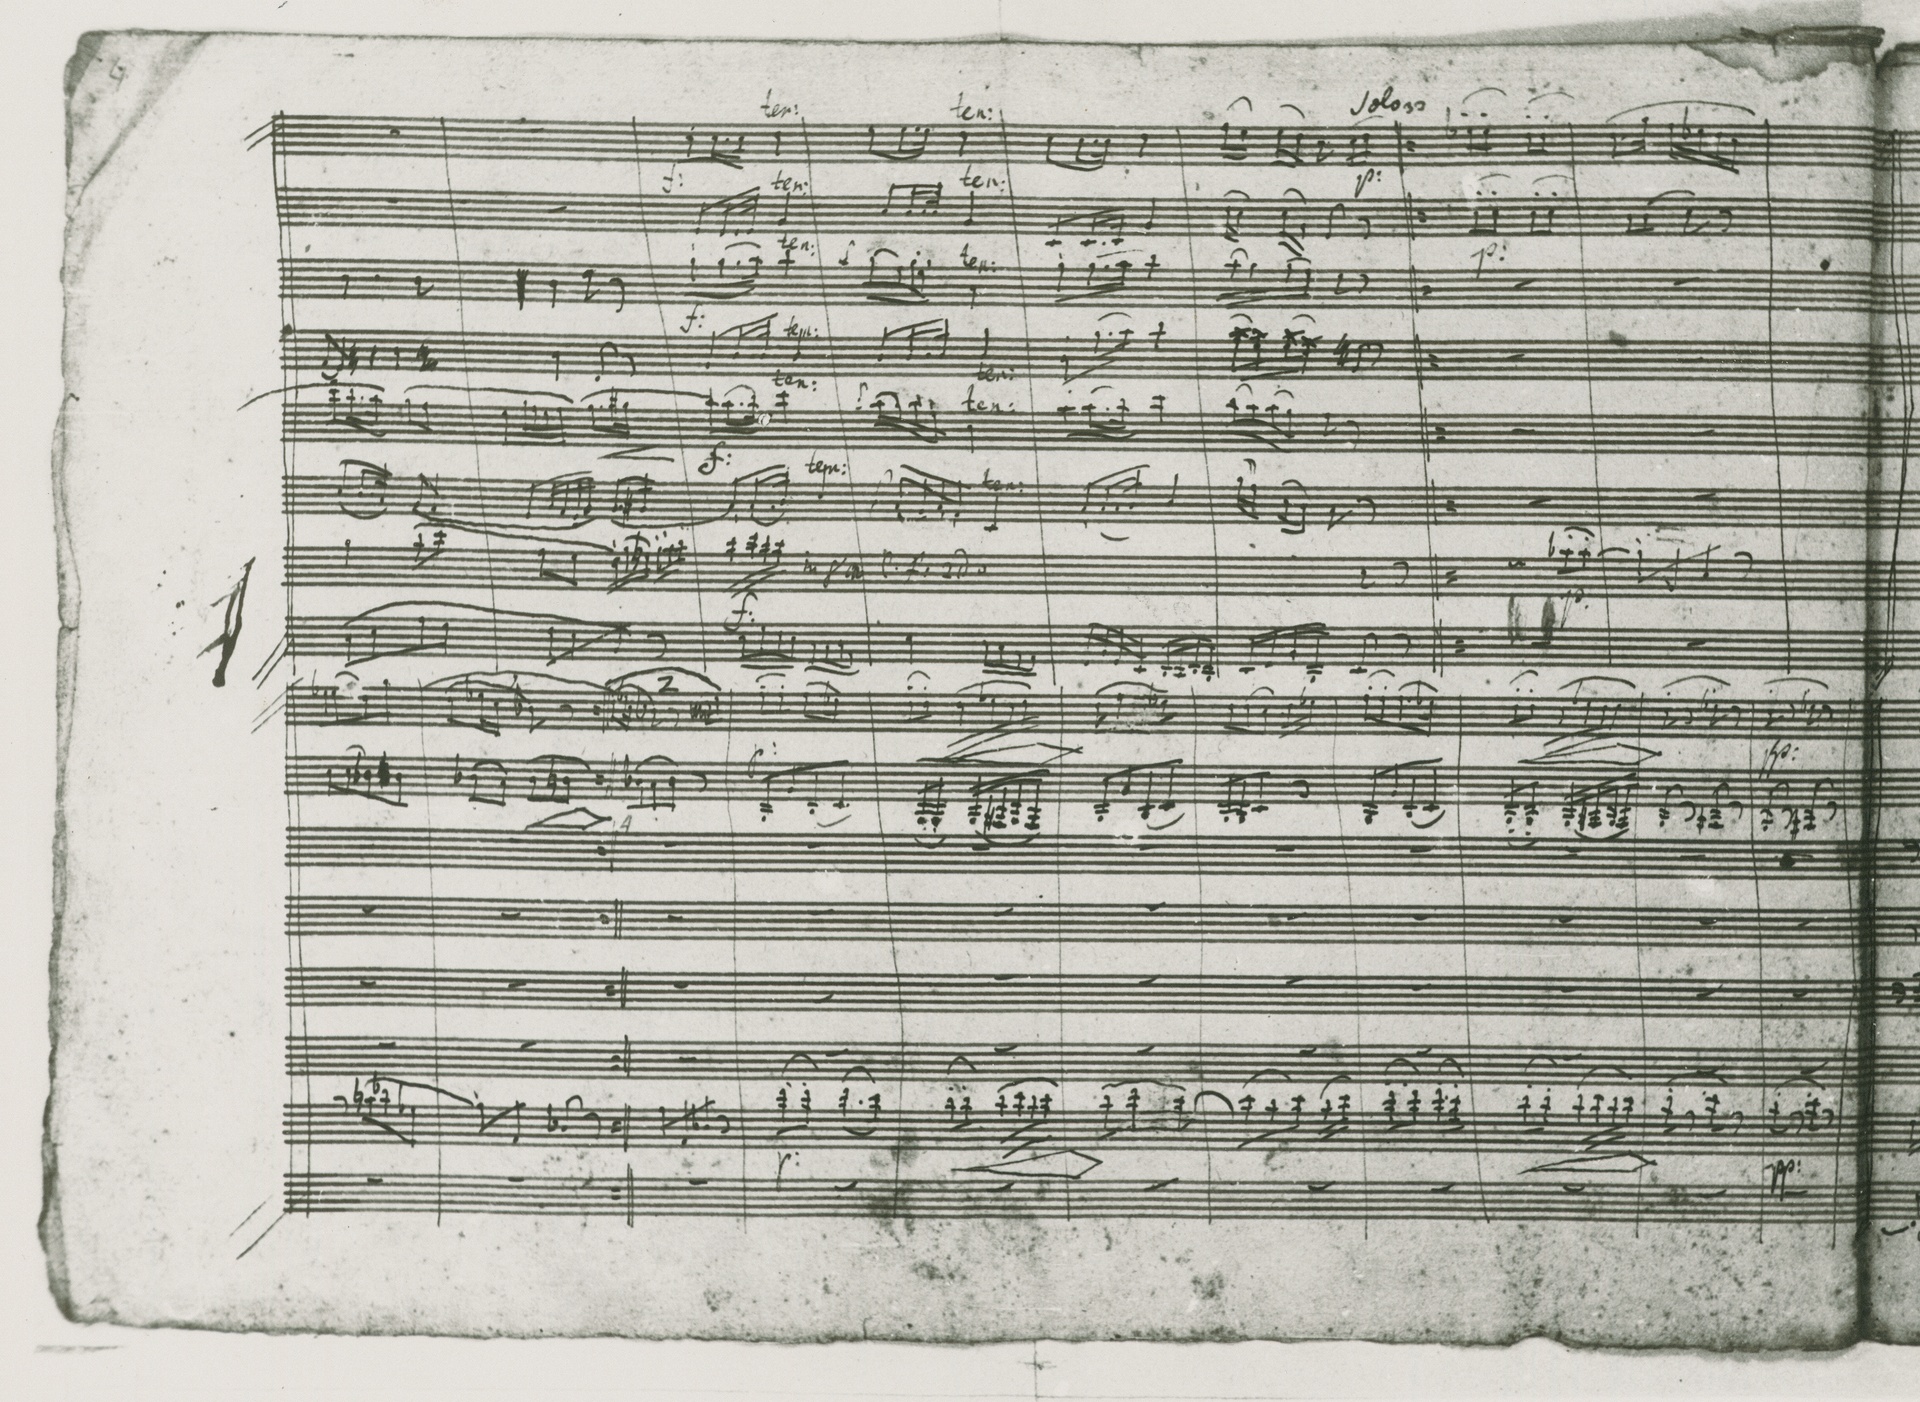 ten: ten: Soloss
f: ten: ten: p:
ten: ten: p:
f: ten:
ten: ten:
ten: ten:
f: ten: ten:
f: p:
2
p: pp:
p: pp: